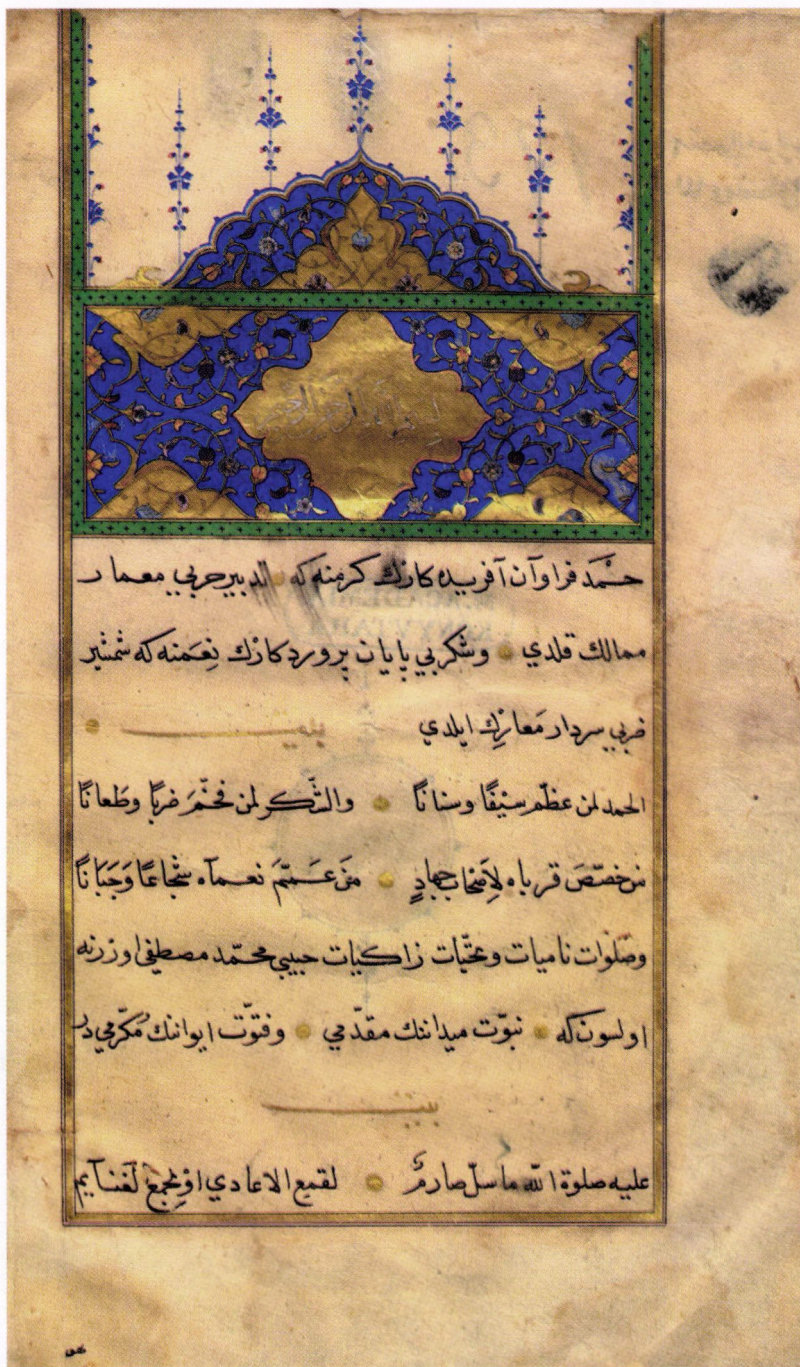 بسم الله الرحمن الرحيم
حمد فراوان آفريده كارنك كرمنه كه تدبير حربي معمار
ممالك قلدي وشكر بي پايان پروردكارنك نعمنه كه شمشير
ضربي سردار معارك ايلدي
الحمد لمن عظّم سيفًا وسنانًا والشّكر لمن فخّم ضربًا وطعانًا
من خصّص قرباه لأصحاب جهادٍ من عمّم نعماه شجاعًا وَجَبَانًا
وصلوات ناميات وتحيّات زاكيات حبيبي محمّد مصطفى اوزرنه
اولسون كه نبوّت ميداننك مقدّمي وفتوّت ايواننك مُكرّمي در
بيت
عليه صلوة الله ما سلّ صارمٌ لقمع الاعادي او لجمع الغنايم